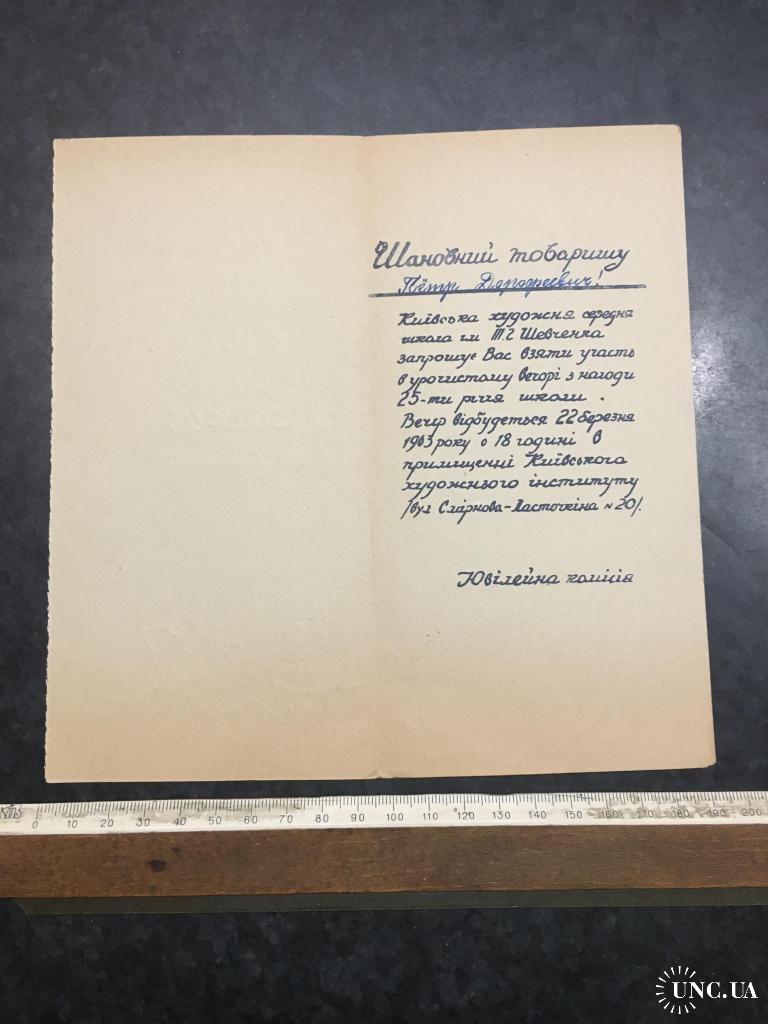 Шановний товаришу
Пётр
Київська художня середня
школа ім Т.Г Шевченка
запрошує Вас взяти участь
в урочистому вечорі з нагоди
25-ти річчя школи .
Вечір відбудеться 22 березня
1963 року о 18 годині в
приміщенні Київського
художнього інституту
/вул Смірнова-Ласточкіна №20/.
Ювілейна комісія
0 10 20 30 40 50 60 70 80 90 100 110 120 130 140 150 160 170 180 190 200
UNC.UA